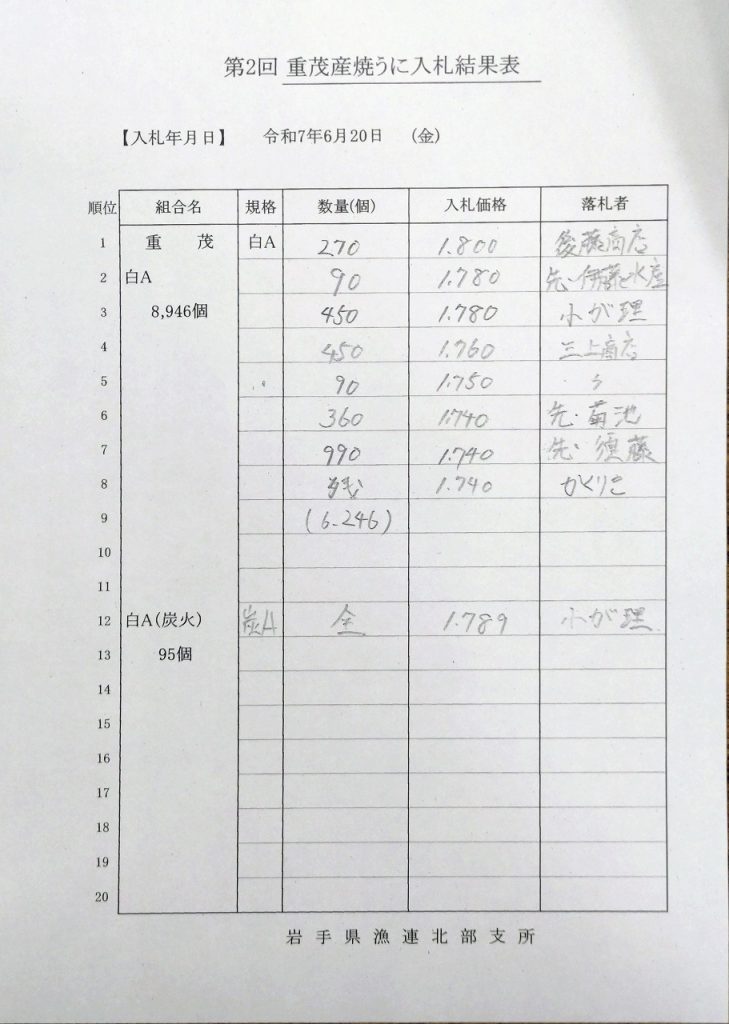 第2回 重茂産焼うに入札結果表
【入札年月日】 令和7年6月20日 (金)
順位 組合名 規格 数量(個) 入札価格 落札者
1 重 茂 白A 270 1.800 後藤商店
2 白A 90 1.780 先・伊藤と水産
3 8,946個 450 1.780 小が理
4 450 1.760 三上商店
5 90 1.750 〃
6 360 1.740 先・菊池
7 990 1.740 先・須藤
8 残 1.740 かくりき
9 (6.246)
10
11
12 白A(炭火) 炭A 全 1.789 小が理
13 95個
14
15
16
17
18
19
20
岩手県漁連北部支所